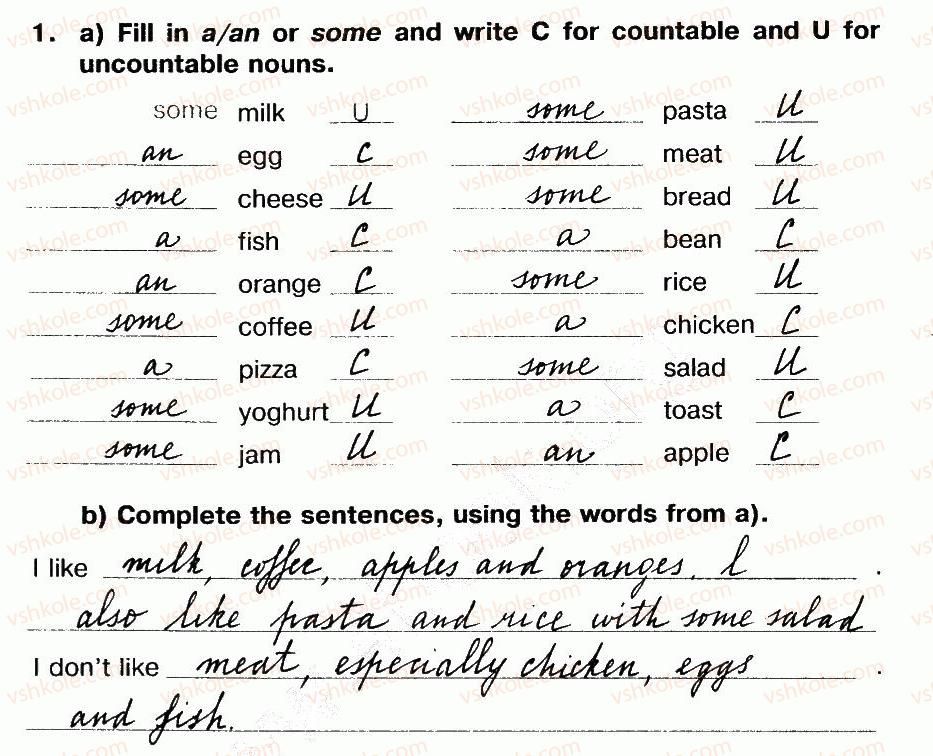 1. a) Fill in a/an or some and write C for countable and U for
uncountable nouns.
some milk U some pasta U
an egg C some meat U
some cheese U some bread U
a fish C a bean C
an orange C some rice U
some coffee U a chicken C
a pizza C some salad U
some yoghurt U a toast C
some jam U an apple C
b) Complete the sentences, using the words from a).
I like milk, coffee, apples and oranges. I .
also like pasta and rice with some salad
I don't like meat, especially chicken, eggs .
and fish.
vshkole.com